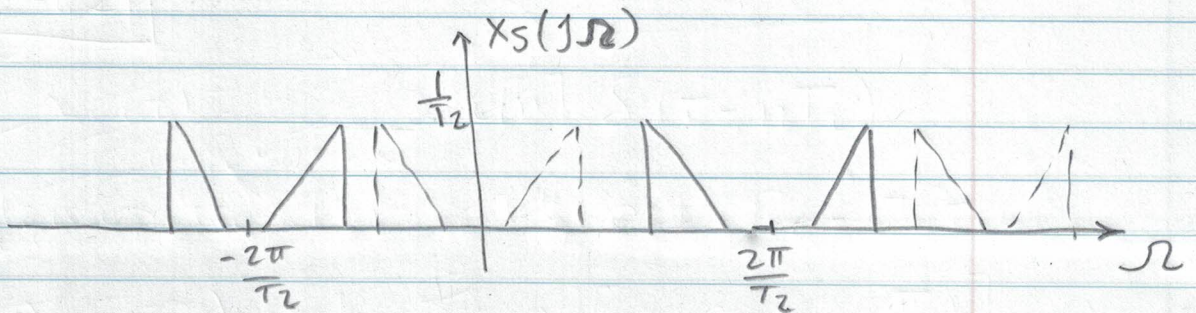 Xs(jΩ)
1/T2
-2π/T2
2π/T2
Ω